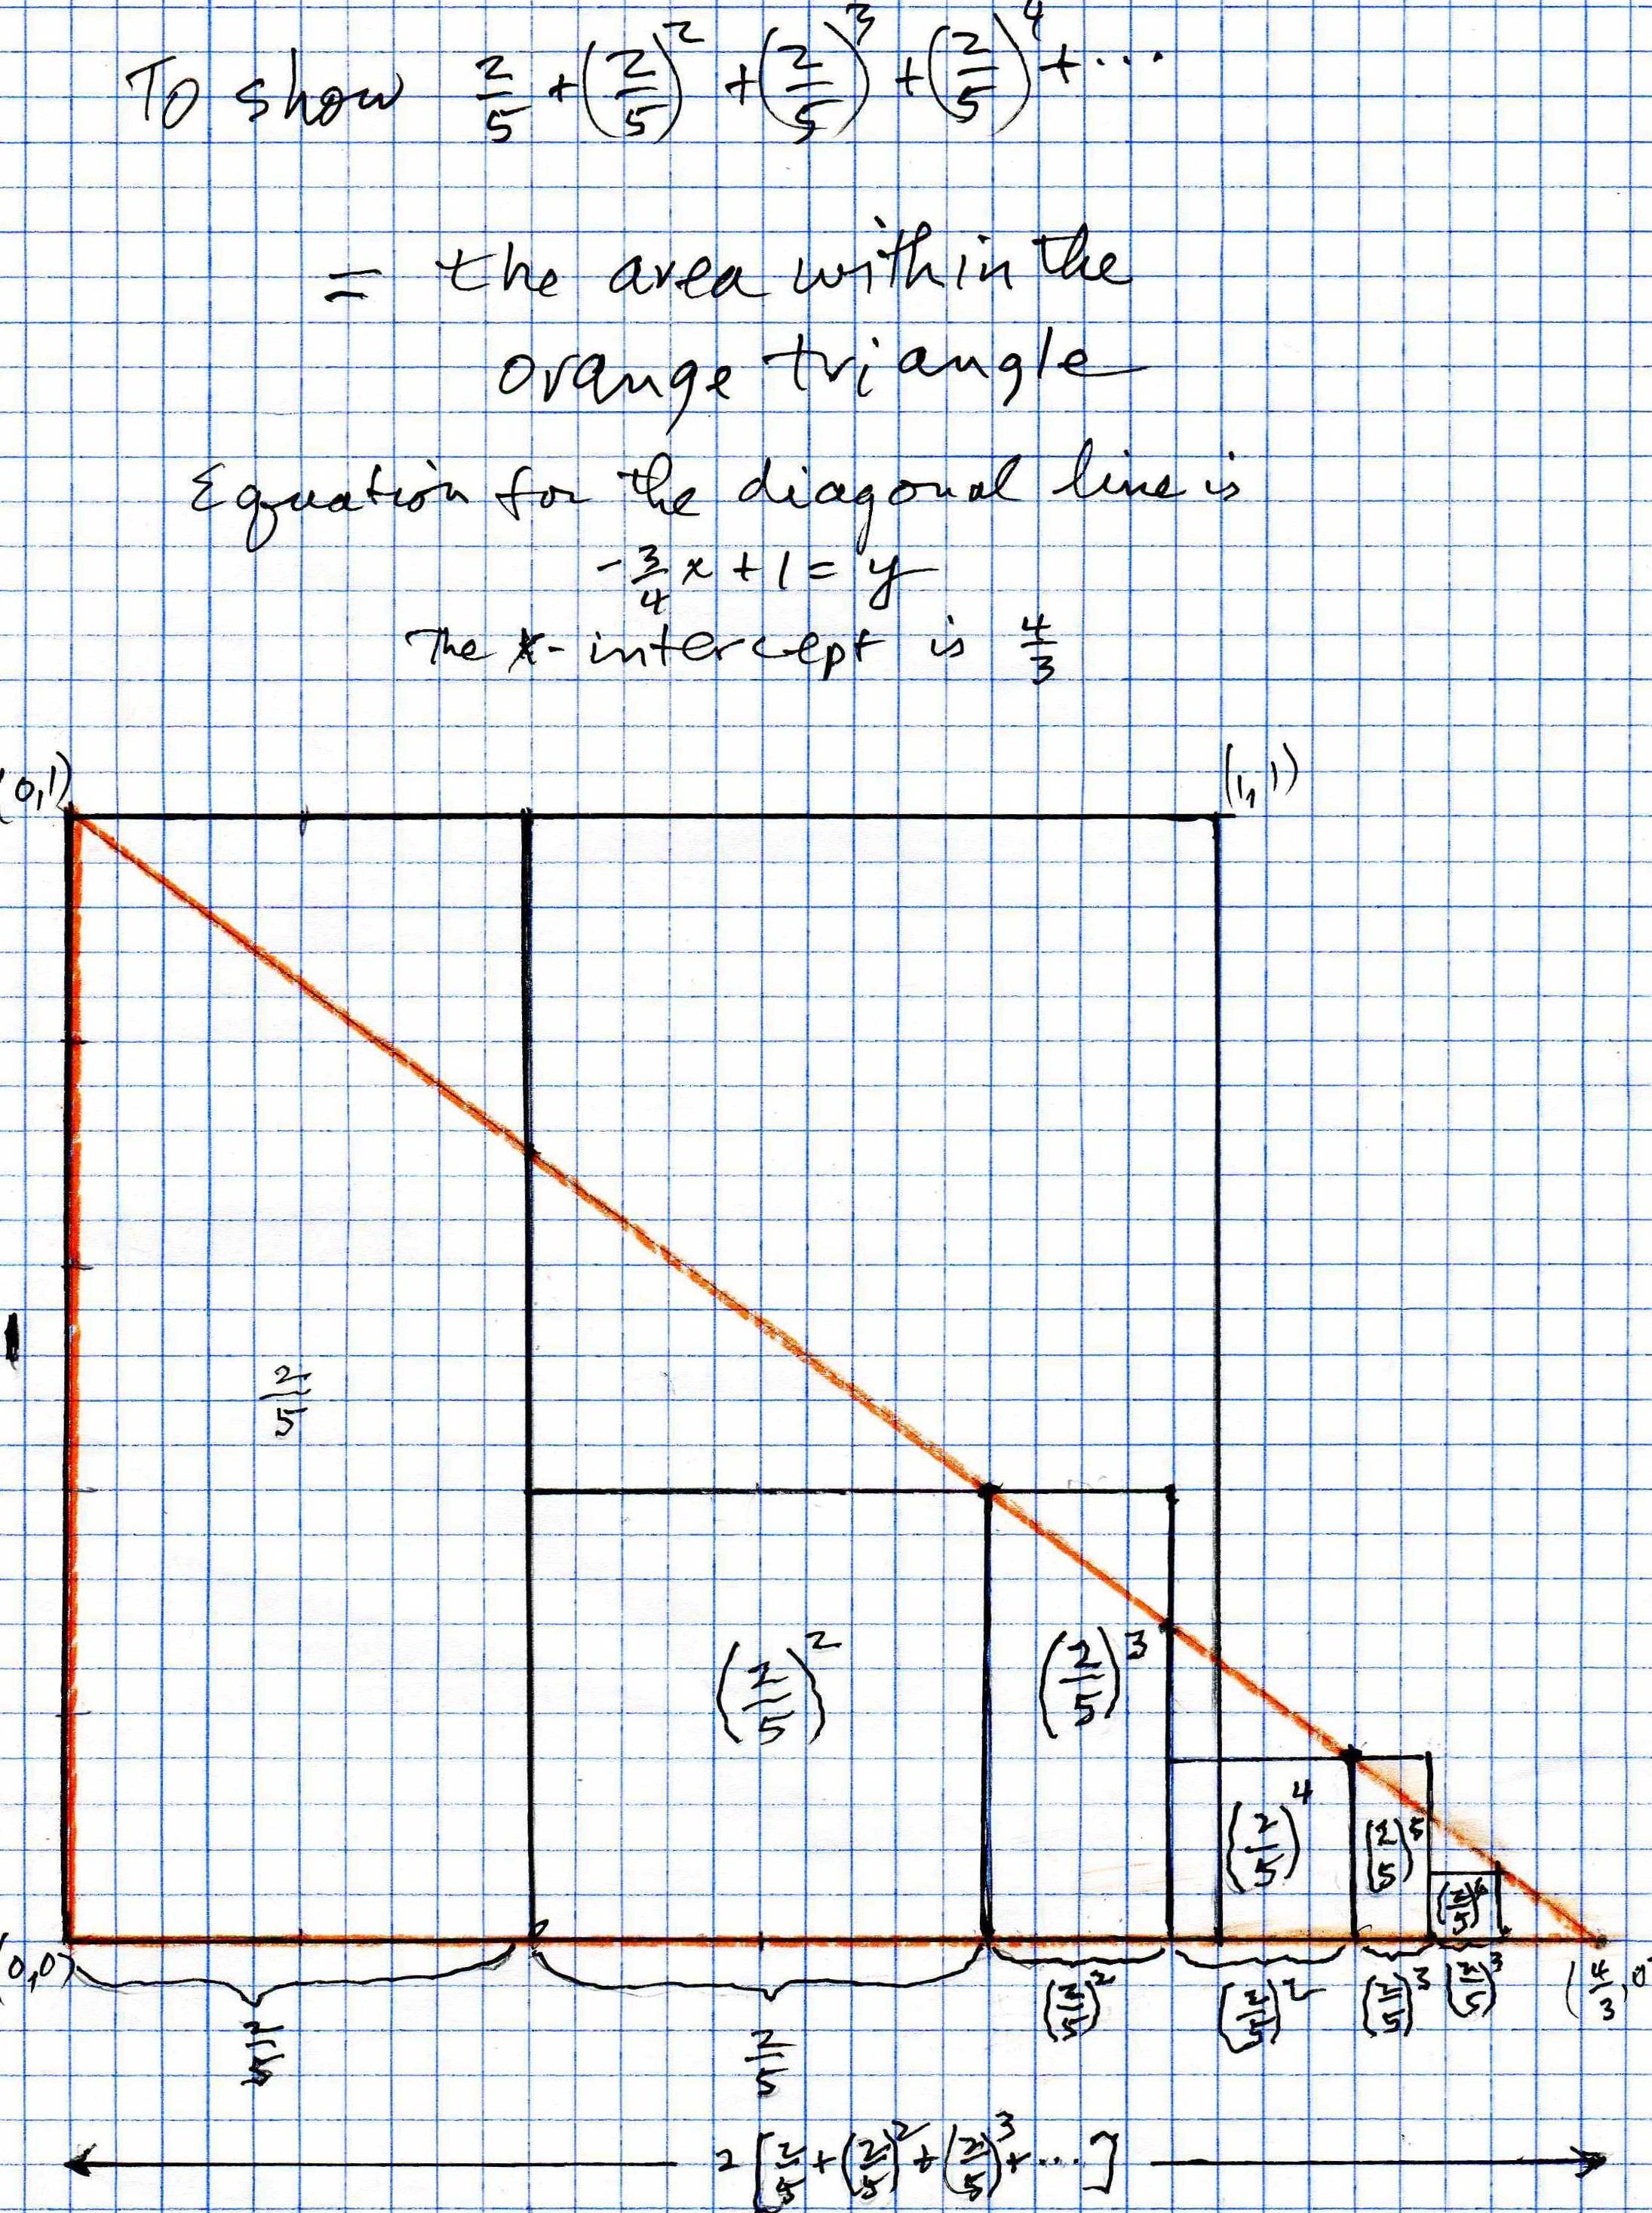 To show 2/5 + (2/5)^2 + (2/5)^3 + (2/5)^4 + ...
= the area within the
orange triangle
Equation for the diagonal line is
-3/4 x + 1 = y
The x-intercept is 4/3
(0,1) (1,1)
1
2/5
(2/5)^2 (2/5)^3
(2/5)^4 (2/5)^5
(2/5)^6
(0,0) (4/3, 0
2/5 2/5 (2/5)^2 (2/5)^2 (2/5)^3 (2/5)^3
2[2/5 + (2/5)^2 + (2/5)^3 + ...]